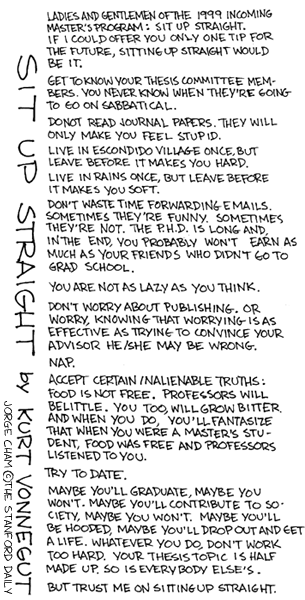 LADIES AND GENTLEMEN OF THE 1999 INCOMING
MASTER'S PROGRAM: SIT UP STRAIGHT.
IF I COULD OFFER YOU ONLY ONE TIP FOR
THE FUTURE, SITTING UP STRAIGHT WOULD
BE IT.
GET TO KNOW YOUR THESIS COMMITTEE MEM-
BERS. YOU NEVER KNOW WHEN THEY'RE GOING
TO GO ON SABBATICAL.
DO NOT READ JOURNAL PAPERS. THEY WILL
ONLY MAKE YOU FEEL STUPID.
LIVE IN ESCONDIDO VILLAGE ONCE, BUT
LEAVE BEFORE IT MAKES YOU HARD.
LIVE IN RAINS ONCE, BUT LEAVE BEFORE
IT MAKES YOU SOFT.
DON'T WASTE TIME FORWARDING EMAILS.
SOMETIMES THEY'RE FUNNY. SOMETIMES
THEY'RE NOT. THE P.H.D. IS LONG AND,
IN THE END, YOU PROBABLY WON'T EARN AS
MUCH AS YOUR FRIENDS WHO DIDN'T GO TO
GRAD SCHOOL.
YOU ARE NOT AS LAZY AS YOU THINK.
DON'T WORRY ABOUT PUBLISHING. OR
WORRY, KNOWING THAT WORRYING IS AS
EFFECTIVE AS TRYING TO CONVINCE YOUR
ADVISOR HE/SHE MAY BE WRONG.
NAP.
ACCEPT CERTAIN INALIENABLE TRUTHS:
FOOD IS NOT FREE. PROFESSORS WILL
BELITTLE. YOU TOO, WILL GROW BITTER.
AND WHEN YOU DO, YOU'LL FANTASIZE
THAT WHEN YOU WERE A MASTER'S STU-
DENT, FOOD WAS FREE AND PROFESSORS
LISTENED TO YOU.
TRY TO DATE.
MAYBE YOU'LL GRADUATE, MAYBE YOU
WON'T. MAYBE YOU'LL CONTRIBUTE TO SO-
CIETY, MAYBE YOU WON'T. MAYBE YOU'LL
BE HOODED, MAYBE YOU'LL DROP OUT AND GET
A LIFE. WHATEVER YOU DO, DON'T WORK
TOO HARD. YOUR THESIS TOPIC IS HALF
MADE UP. SO IS EVERYBODY ELSE'S.
BUT TRUST ME ON SITTING UP STRAIGHT.
SIT UP STRAIGHT by KURT VONNEGUT
JORGE CHAM ©THE STANFORD DAILY